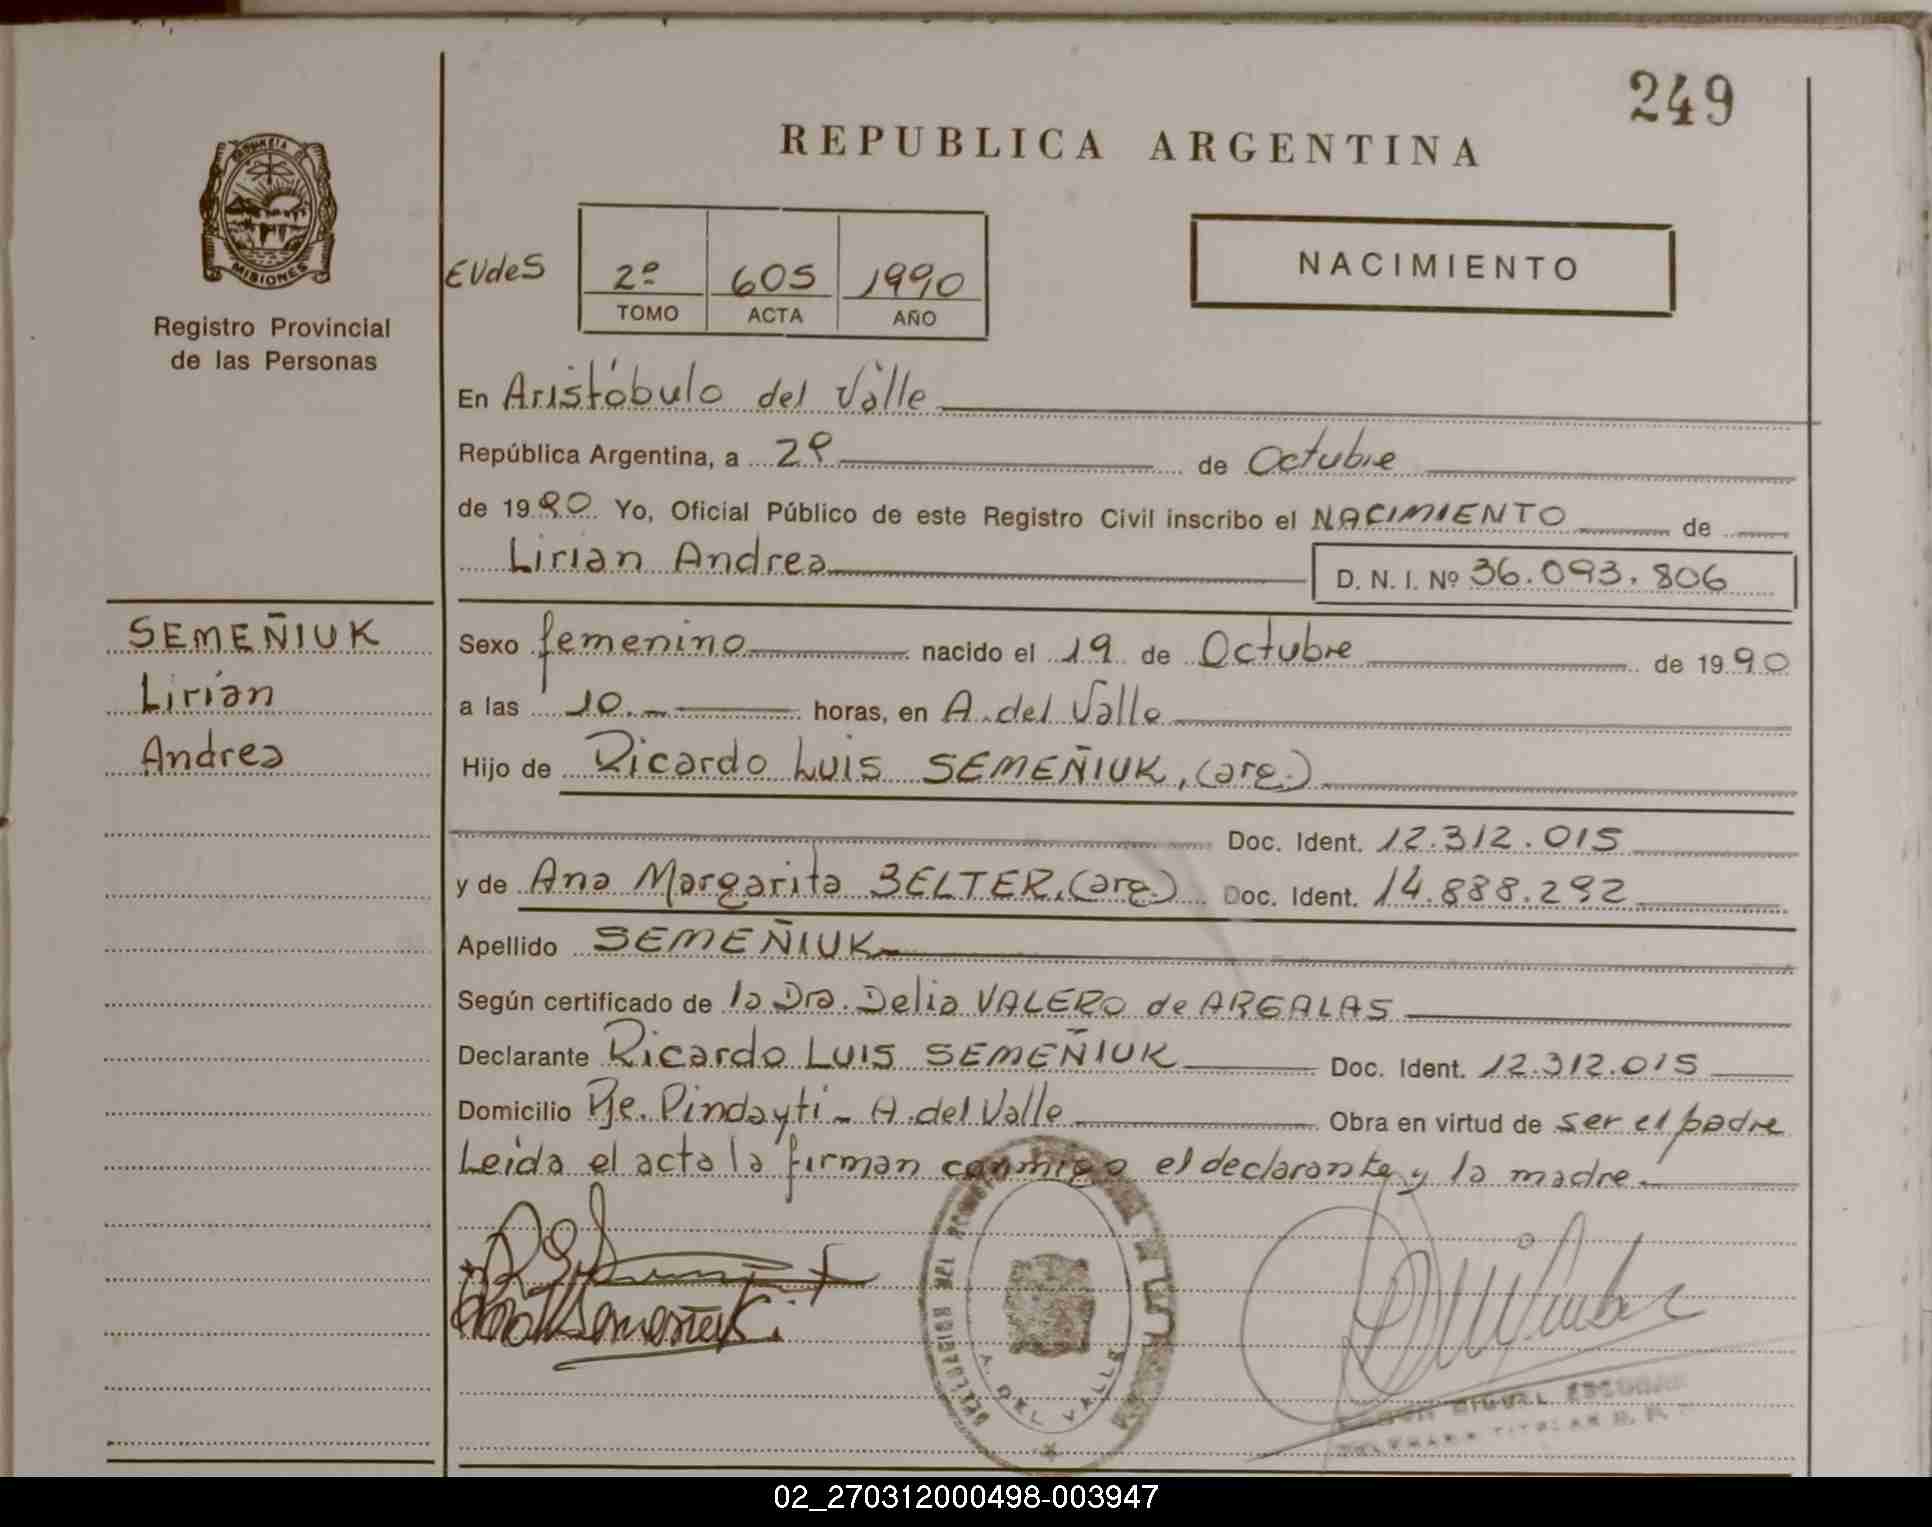 249
REPUBLICA ARGENTINA
PROVINCIA DE
MISIONES
Registro Provincial
de las Personas
EUdeS
2º 605 1990
TOMO ACTA AÑO
NACIMIENTO
En Aristóbulo del Valle
República Argentina, a 29 de Octubre
de 1990 Yo, Oficial Público de este Registro Civil inscribo el NACIMIENTO de
Lirian Andrea D. N. I. Nº 36.093.806
SEMEÑIUK
Lirian
Andrea
Sexo femenino nacido el 19 de Octubre de 1990
a las 10.- horas, en A. del Valle
Hijo de Ricardo Luis SEMEÑIUK, (arg.)
Doc. Ident. 12.312.015
y de Ana Margarita BELTER, (arg.) Doc. Ident. 14.888.292
Apellido SEMEÑIUK
Según certificado de la Dra. Delia VALERO de ARGALAS
Declarante Ricardo Luis SEMEÑIUK Doc. Ident. 12.312.015
Domicilio Pje. Pindayti - A. del Valle Obra en virtud de ser el padre
Leida el acta la firman conmigo el declarante y la madre.
A. DEL VALLE
MIGUEL
TITULAR
02_270312000498-003947